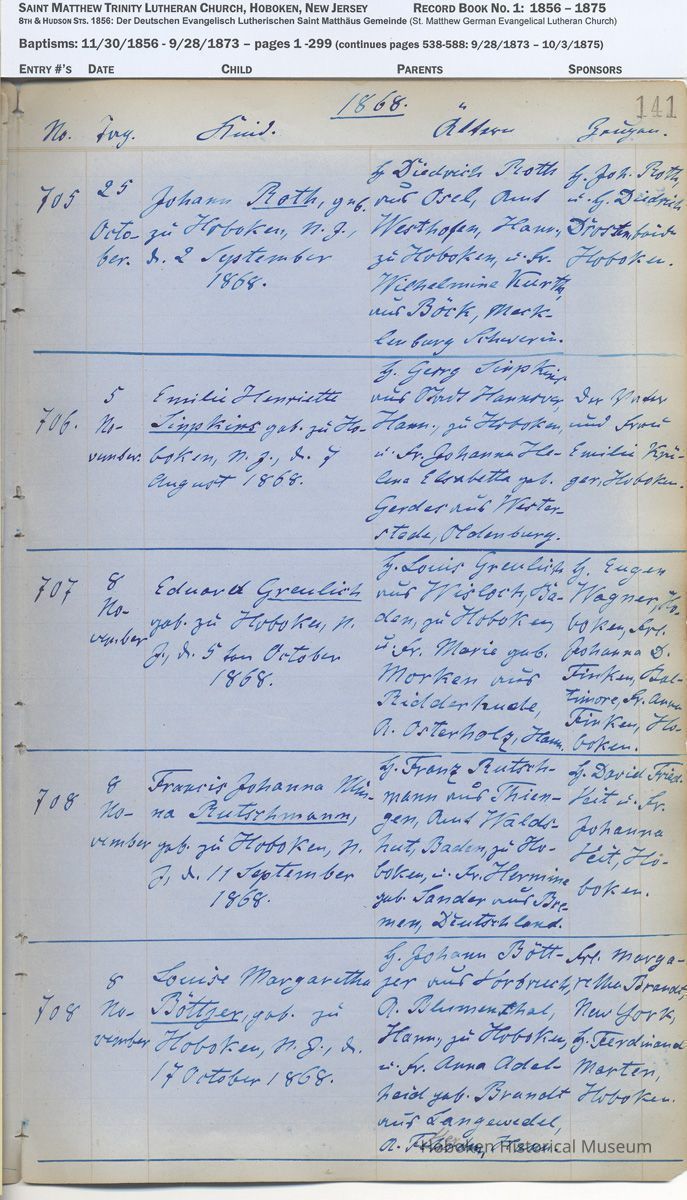 SAINT MATTHEW TRINITY LUTHERAN CHURCH, HOBOKEN, NEW JERSEY RECORD BOOK NO. 1: 1856 – 1875
8TH & HUDSON STS. 1856: Der Deutschen Evangelisch Lutherischen Saint Matthäus Gemeinde (St. Matthew German Evangelical Lutheran Church)
Baptisms: 11/30/1856 - 9/28/1873 – pages 1 -299 (continues pages 538-588: 9/28/1873 – 10/3/1875)
ENTRY #'S DATE CHILD PARENTS SPONSORS
1868.
141
No. Tag. Kind. Ältern Zeugen.
705
25
Octo-
ber.
Johann Roth, geb.
zu Hoboken, N. J.,
d. 2 September
1868.
H. Diedrich Roth
aus Osel, Amt
Westhofen, Hann.,
zu Hoboken, u. Fr.
Wilhelmine Kurth,
aus Böck, Meck-
lenburg Schwerin.
H. Joh. Roth,
u. H. Diedrich
Hoboken.
706.
5
No-
vember.
Emilie Henriette
Simpkins geb. zu Ho-
boken, N. J., d. 7
August 1868.
H. Georg Simpkins
aus Stadt Hannover,
Hann., zu Hoboken,
u. Fr. Johanna He-
lena Elsabetta geb.
Gerdes aus Wester-
stede, Oldenburg.
Der Vater
und Frau
Emilie Krü-
ger, Hoboken.
707
8
No-
vember
Eduard Greulich
geb. zu Hoboken, N.
J., d. 5 ten October
1868.
H. Louis Greulich
aus Wisloch, Ba-
den, zu Hoboken,
u. Fr. Marie geb.
Morken aus
Ridderhude,
A. Osterholz, Hann.
H. Eugen
Wagner, Ho-
boken, Frl.
Johanna D.
Finken, Bal-
timore, Fr. Anna
Finken, Ho-
boken.
708
8
No-
vember
Francis Johanna Min-
na Rutschmann,
geb. zu Hoboken, N.
J., d. 11 September
1868.
H. Franz Rutsch-
mann aus Thien-
gen, Amt Walds-
hut, Baden, zu Ho-
boken, u. Fr. Hermine
geb. Sander aus Bre-
men, Deutschland.
H. David Fried.
Veit u. Fr.
Johanna
Veit, Ho-
boken.
708
8
No-
vember
Louise Margaretha
Böttger, geb. zu
Hoboken, N. J., d.
17 October 1868.
H. Johann Bött-
ger aus Vorbruch,
A. Blumenthal,
Hann., zu Hoboken,
u. Fr. Anna Adel-
heid geb. Brandt
aus Langwedel,
Hann.
Frl. Marga-
rethe Brandt,
New York,
H. Ferdinand
Marten,
Hoboken.
Hoboken Historical Museum